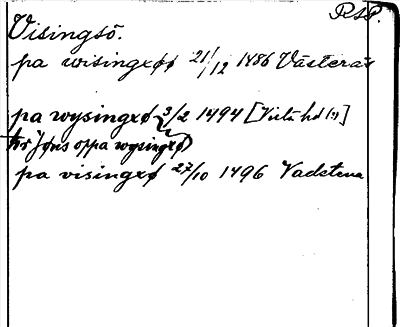 RAP.
Visingsö.
pa wisingxøø 21/12 1486 Västerås
pa wysingxø 3/2 1494 [Vilū hd (?)]
hr Jøns oppa wysingxø
pa visingxø 27/10 1496 Vadstena